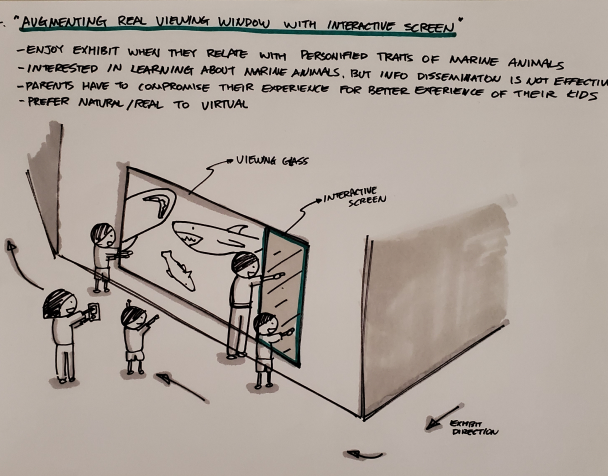 "AUGMENTING REAL VIEWING WINDOW WITH INTERACTIVE SCREEN"
-ENJOY EXHIBIT WHEN THEY RELATE WITH PERSONIFIED TRAITS OF MARINE ANIMALS
-INTERESTED IN LEARNING ABOUT MARINE ANIMALS, BUT INFO DISSEMINATON IS NOT EFFECTIV
-PARENTS HAVE TO COMPROMISE THEIR EXPERIENCE FOR BETTER EXPERIENCE OF THEIR KIDS
-PREFER NATURAL/REAL TO VIRTUAL
VIEWING GLASS
INTERACTIVE
SCREEN
EXHIBIT
DIRECTION